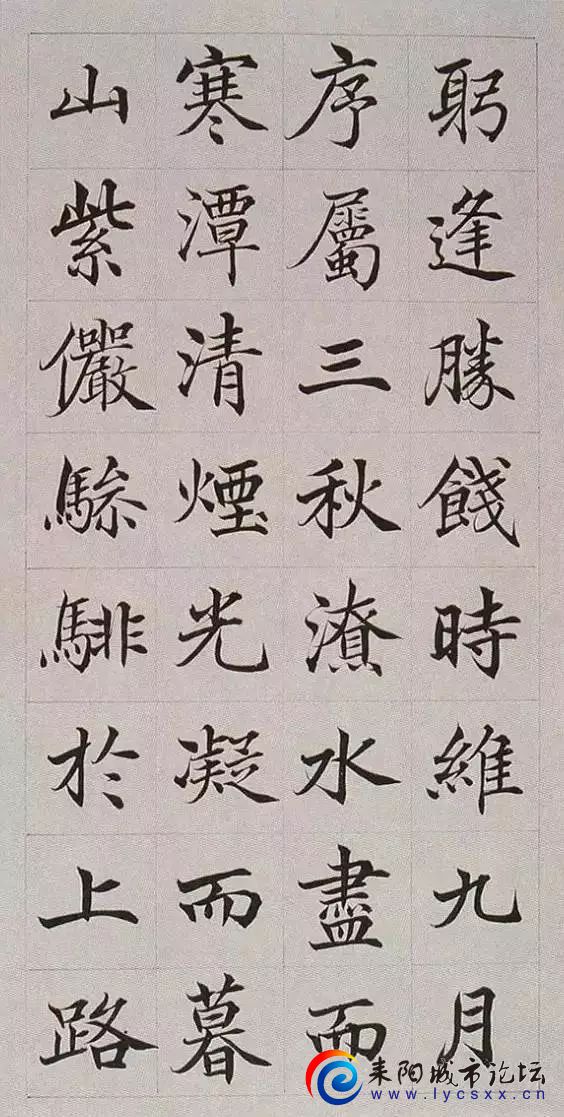 躬逢勝餞時維九月
序屬三秋潦水盡而
寒潭清煙光凝而暮
山紫儼驂騑於上路
耒阳城市论坛
www.lycsxx.cn